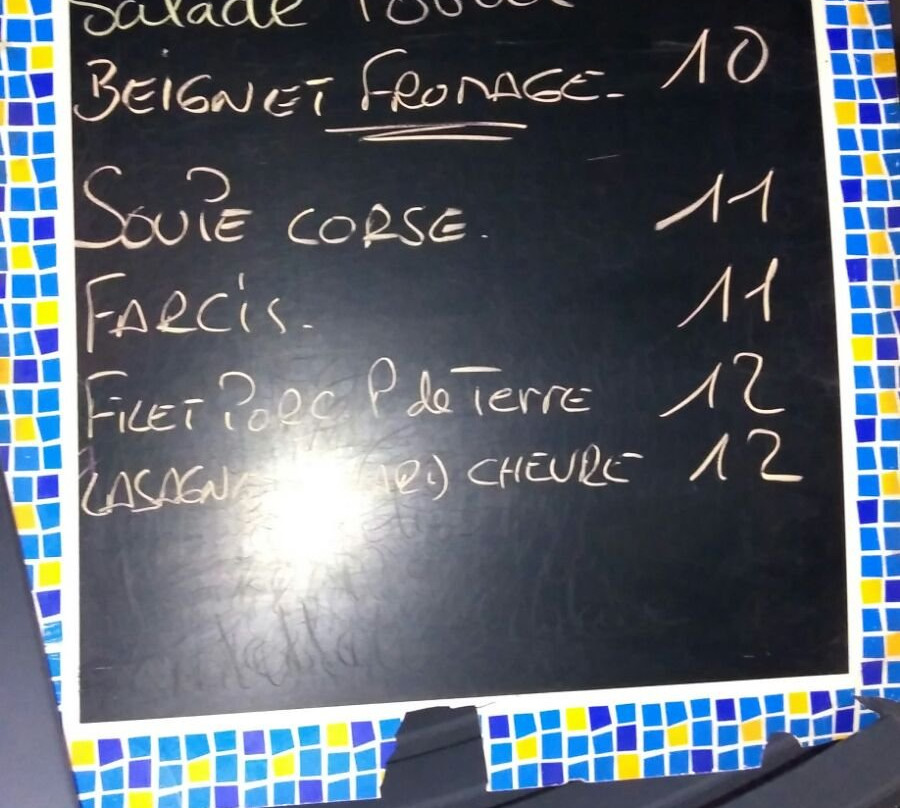 Salade
BEIGNET FROMAGE- 10
SOUPE CORSE. 11
FARCIS. 11
FILET PORC P de Terre 12
CHEVRE 12